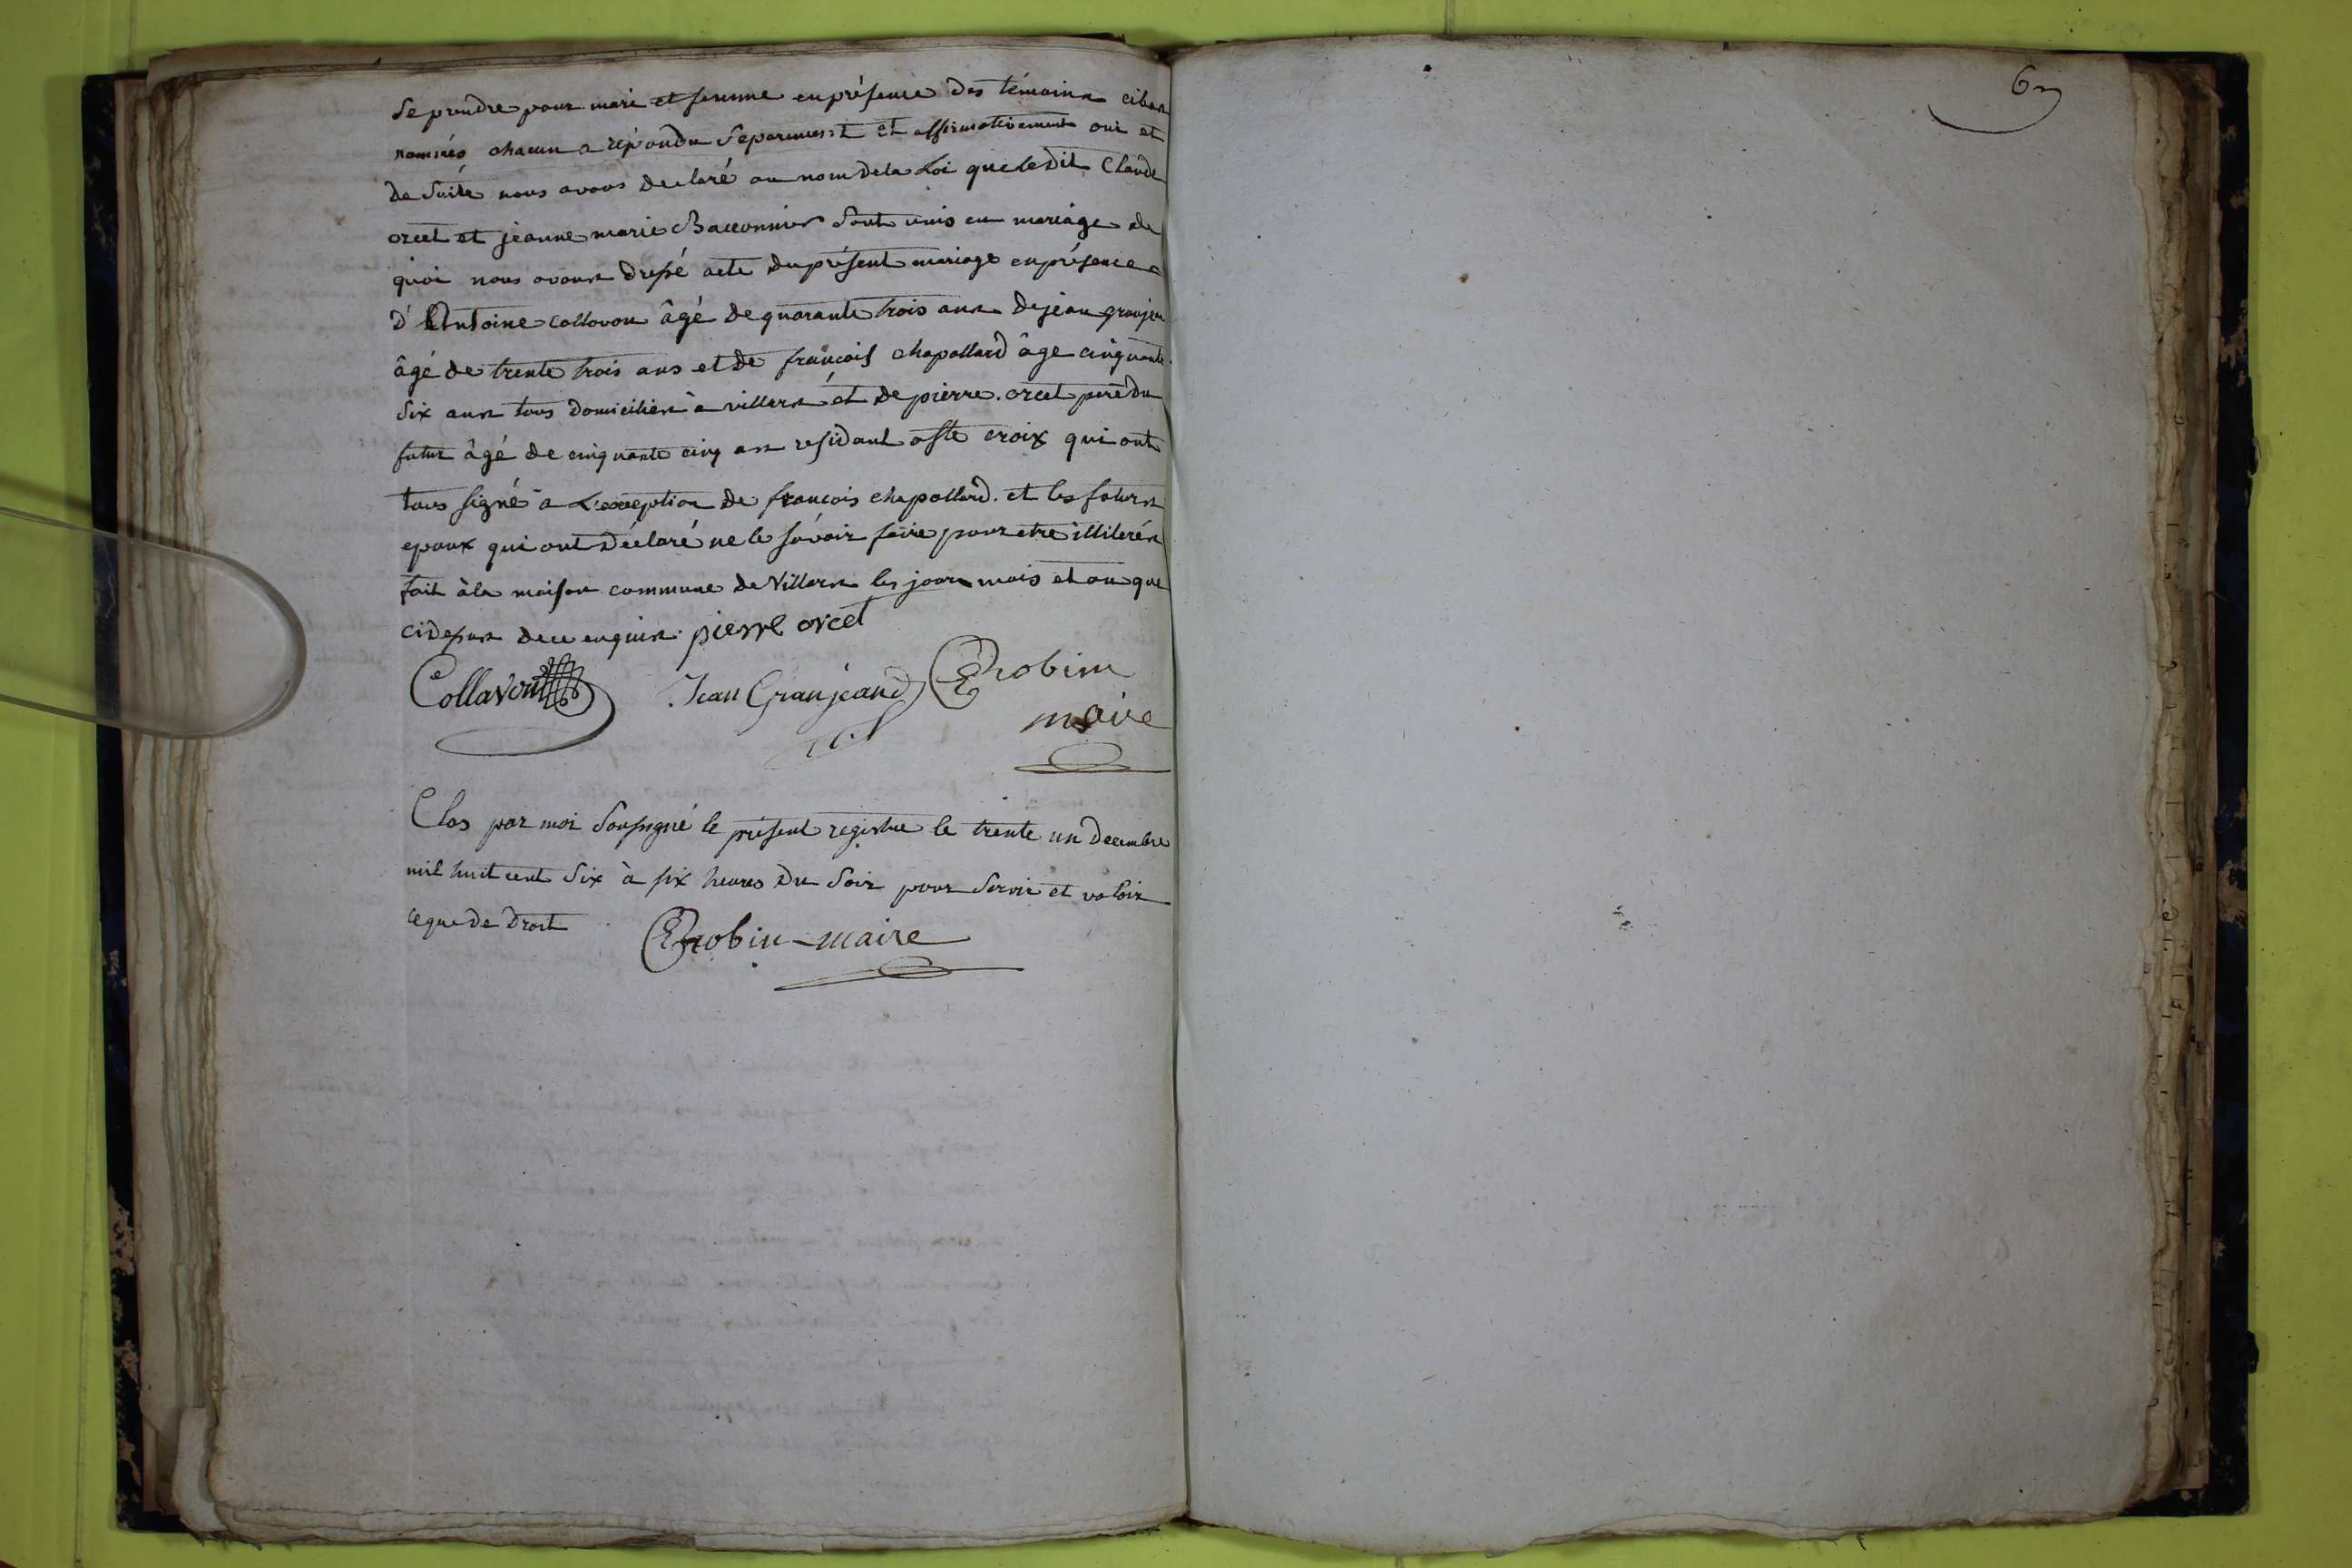 Se prendre pour mari et femme en présence des témoins cibas
nommés chacun a répondu Separement et affirmativement oui et
de Suite nous avons declaré au nom de la Loi que ledit Claude
orcet et jeanne marie Bacconnier Sont unis en mariage de
quoi nous avons dressé acte du présent mariage en présence
d'Antoine collovon âgé de quarante trois ans de jean granjean
âgé de trente trois ans et de françois chapollard âge cinquante
Six ans tous domiciliés à villars et de pierre orcet pere du
futur âgé de cinquante cinq ans residant a Ste croix qui ont
tous signé à L'exception de françois chapollard et les futurs
epoux qui ont déclaré ne le sávoir faire pour etre illiterés
fait à la maison commune de Villars les jour mois et an que
cidessus de ce enquis. pierre orcet
Collavon Jean Granjeand Robin
maire
Clos par moi Soussigné le présent registre le trente un Decembre
mil huit cent Six à six heures du Soir pour Servir et valoir
ce que de Droit Robin maire
6